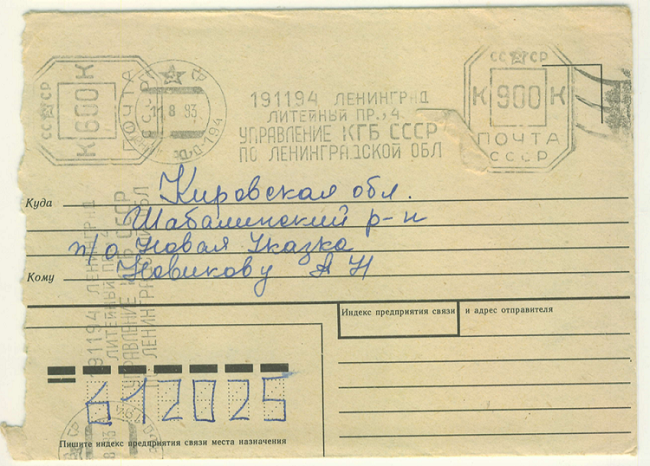 СССР
К 600 К
ПОЧТА
8 93
191194 ЛЕНИНГРАД
ЛИТЕЙНЫЙ ПР., 4
УПРАВЛЕНИЕ КГБ СССР
ПО ЛЕНИНГРАДСКОЙ ОБЛ
СССР
К 900 К
ПОЧТА
СССР
Куда Кировская обл.
Шабалинский р-н
п/о Новая Указка
Кому Новикову А Н
191194 ЛЕНИНГР Д
ЛИТЕЙНЫЙ ПР 4
УПРАВЛЕНИЕ КГБ СССР
ЛЕНИНГРАДСКОЙ ОБЛ
Индекс предприятия связи и адрес отправителя
612025
Пишите индекс предприятия связи места назначения
8 93